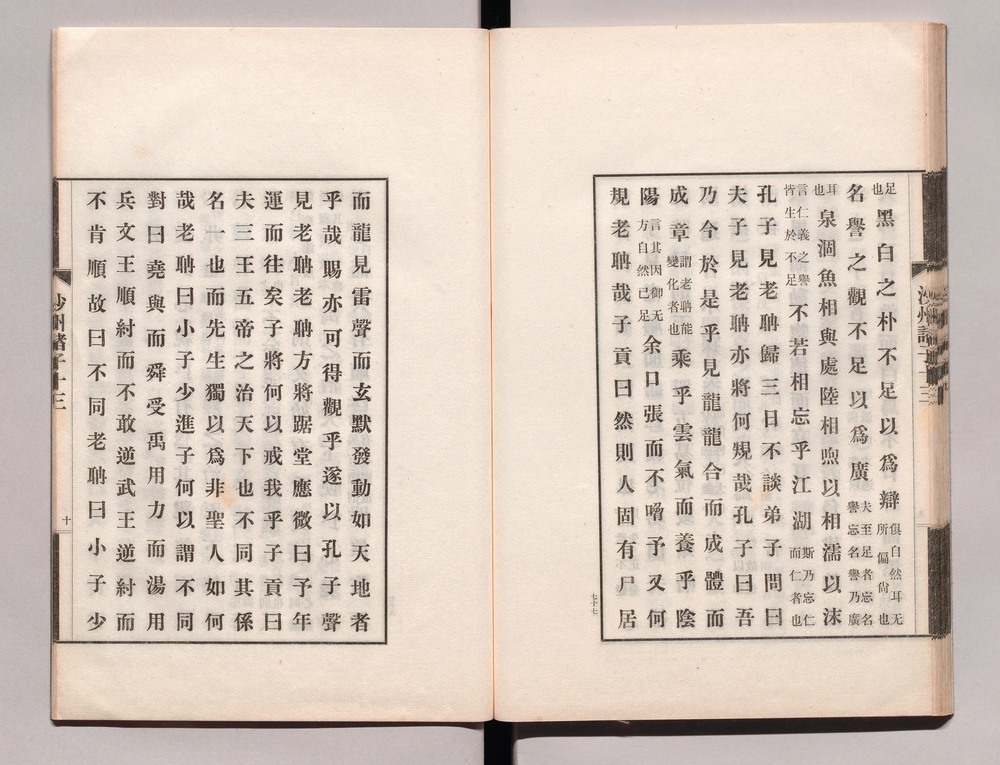 足也黑白之朴不足以爲辯俱自然耳无所偏尙也
名譽之觀不足以爲廣夫至足者忘名譽忘名譽乃廣
耳也泉涸魚相與處陸相喣以相濡以沫
言仁義之譽皆生於不足不若相忘乎江湖斯乃忘仁而仁者也
孔子見老聃歸三日不談弟子問曰
夫子見老聃亦將何䂓哉孔子曰吾
乃今於是乎見龍龍合而成體而
成章謂老聃能變化者也乘乎雲氣而養乎陰
陽言其因御无方自然已足余口張而不噲予又何
規老聃哉子貢曰然則人固有尸居
七十七
而龍見雷聲而玄默發動如天地者
乎哉賜亦可得觀乎遂以孔子聲
見老聃老聃方將踞堂應微曰予年
運而往矣子將何以戒我乎子貢曰
夫三王五帝之治天下也不同其係
名一也而先生獨以爲非聖人如何
哉老聃曰小子少進子何以謂不同
對曰堯與而舜受禹用力而湯用
兵文王順紂而不敢逆武王逆紂而
不肯順故曰不同老聃曰小子少
沙州諸子十三
十